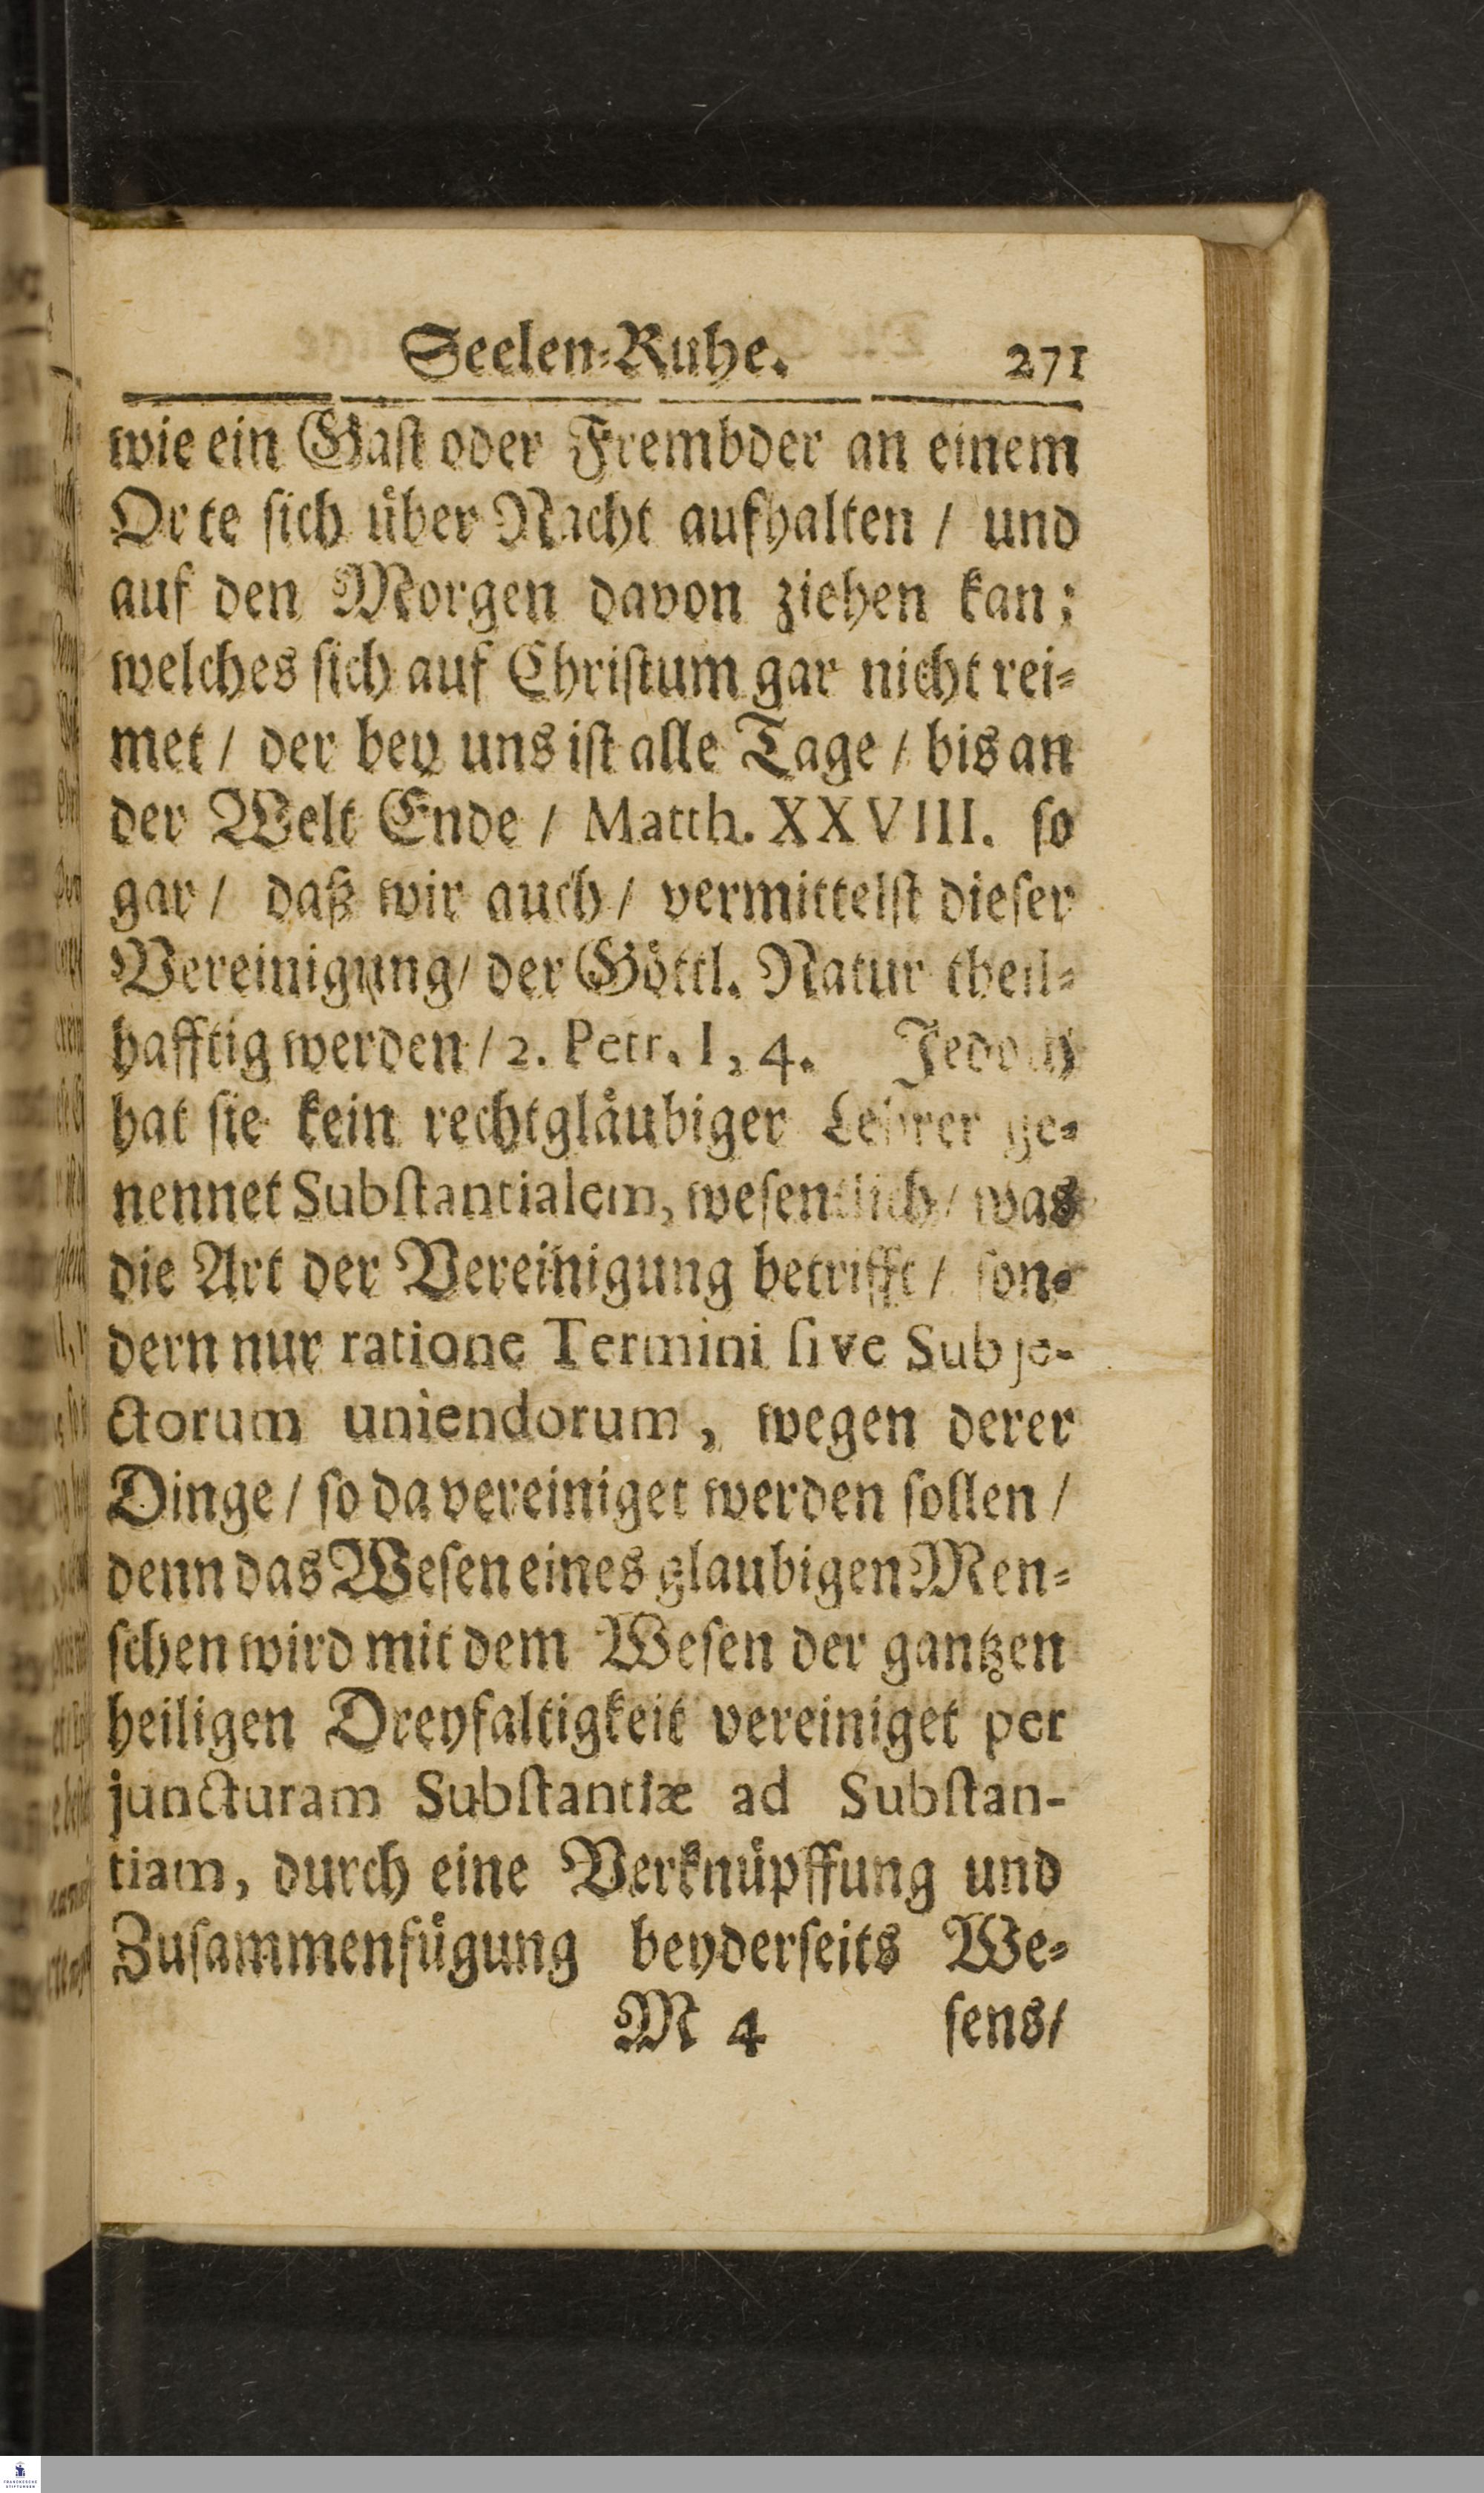 Seelen-Ruhe. 271
wie ein Gast oder Frembder an einem
Orte sich uͤber Nacht aufhalten / und
auf den Morgen davon ziehen kan;
welches sich auf Christum gar nicht rei-
met / der bey uns ist alle Tage / bis an
der Welt Ende / Matth. XXVIII. so
gar / daß wir auch / vermittelst dieser
Vereinigung / der Goͤttl. Natur theil-
hafftig werden / 2. Petr. I, 4. Jedoch
hat sie kein rechtglaͤubiger Lehrer ge-
nennet Substantialem, wesentlich / was
die Art der Vereinigung betrifft / son-
dern nur ratione Termini sive Subje-
ctorum uniendorum, wegen derer
Dinge / so da vereiniget werden sollen /
denn das Wesen eines glaubigen Men-
schen wird mit dem Wesen der gantzen
heiligen Dreyfaltigkeit vereiniget per
juncturam Substantiæ ad Substan-
tiam, durch eine Verknuͤpffung und
Zusammenfuͤgung beyderseits We-
M 4 sens /
FRANCKESCHE
STIFTUNGEN